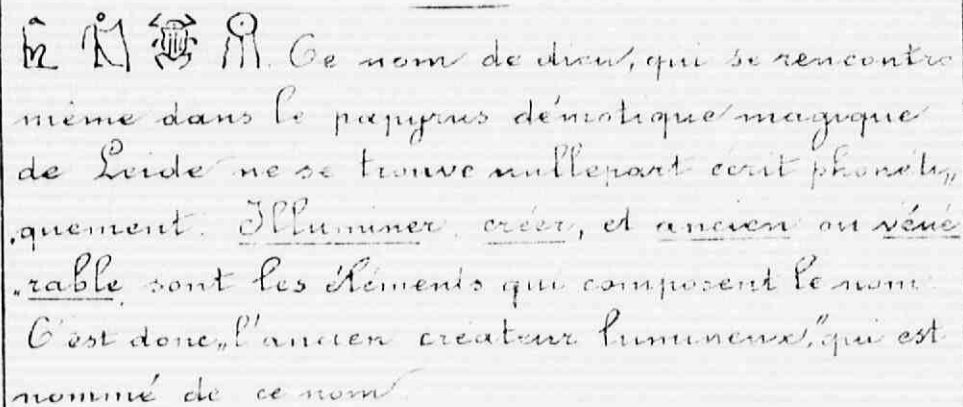 Ce nom de dieu, qui se rencontre
même dans le papyrus démotique magique
de Leide ne se trouve nullepart écrit phonéti„
„quement. Illuminer, créer, et ancien ou véné
„rable, sont les éléments qui composent le nom.
C'est donc „l'ancien créateur lumineux," qui est
nommé de ce nom.